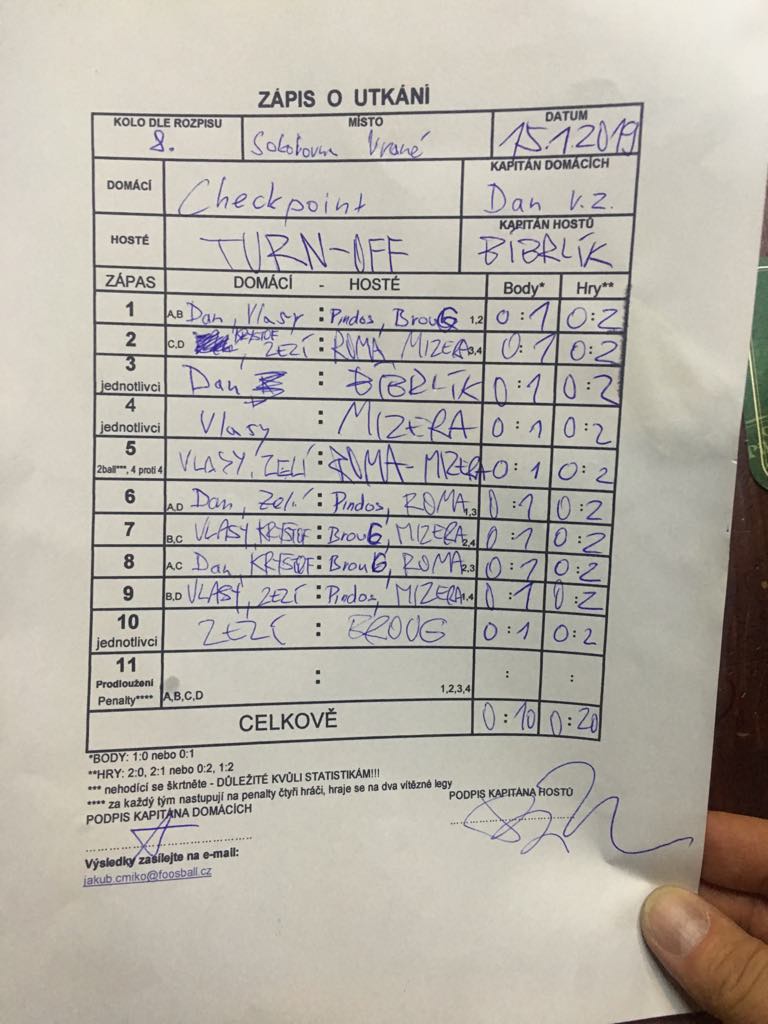 ZÁPIS O UTKÁNÍ
KOLO DLE ROZPISU MÍSTO DATUM
8. Sokolovna Vrané 15.1.2019
DOMÁCÍ Checkpoint KAPITÁN DOMÁCÍCH Dan V.Z.
HOSTÉ TURN-OFF KAPITÁN HOSTŮ BÍBRLÍK
ZÁPAS DOMÁCÍ - HOSTÉ Body* Hry**
1 A,B Dan, Vlasy : Pindos, BrouG 1,2 0:1 0:2
2 C,D KRYSTOF, ZEZÍ : ROMA MIZERA 3,4 0:1 0:2
3 jednotlivci Dan : BÍBRLÍK 0:1 0:2
4 jednotlivci Vlasy : MIZERA 0:1 0:2
5 2ball***, 4 proti 4 VLASY, ZELÍ : ROMA-MIZERA 0:1 0:2
6 A,D Dan, Zelí : Pindos, ROMA 1,3 0:1 0:2
7 B,C VLASY, KRYSTOF : BrouG, MIZERA 2,4 0:1 0:2
8 A,C Dan, KRYSTOF : BrouG, ROMA 2,3 0:1 0:2
9 B,D VLASY, ZEZÍ : Pindos, MIZERA 1,4 0:1 0:2
10 jednotlivci ZEZÍ : BROUG 0:1 0:2
11 Prodloužení Penalty**** A,B,C,D : 1,2,3,4 : :
CELKOVĚ 0:10 0:20
*BODY: 1:0 nebo 0:1
**HRY: 2:0, 2:1 nebo 0:2, 1:2
*** nehodící se škrtněte - DŮLEŽITÉ KVŮLI STATISTIKÁM!!!
**** za každý tým nastupují na penalty čtyři hráči, hraje se na dva vítězné legy
PODPIS KAPITÁNA DOMÁCÍCH PODPIS KAPITÁNA HOSTŮ
Výsledky zasílejte na e-mail:
jakub.cmiko@foosball.cz